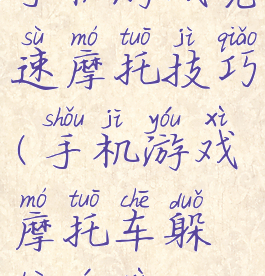 sù mó tuō jì qiǎo
速摩托技巧
shǒu jī yóu xì
(手机游戏
mó tuō chē duǒ
摩托车躲